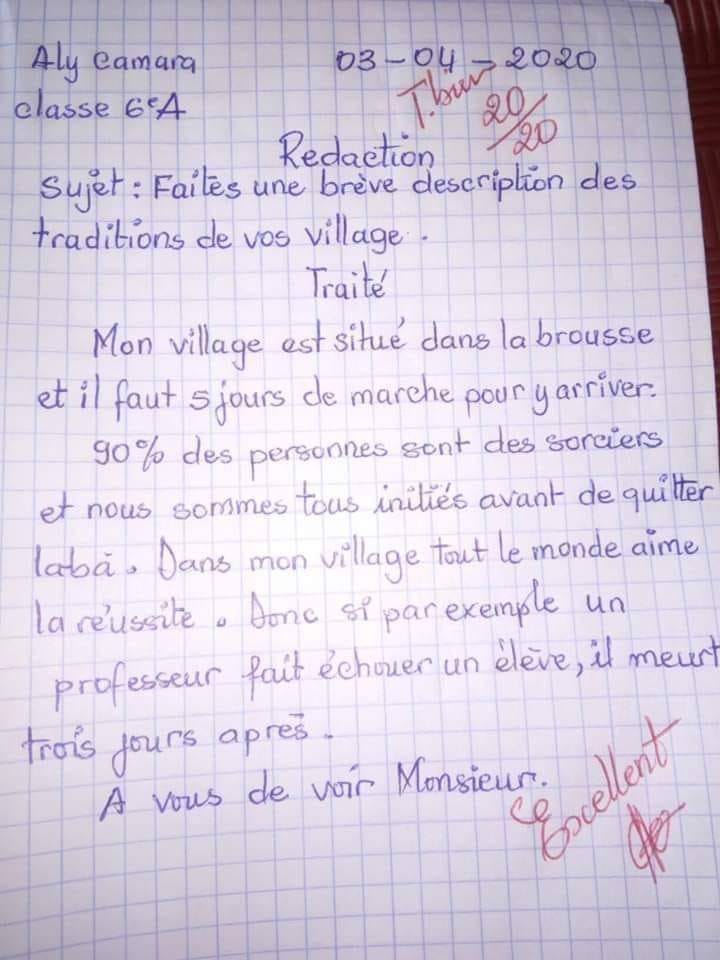 Aly Camara 03-04-2020
classe 6eA
T. bien 20/20
Redaction
Sujet : Faites une brève description des
traditions de vos village.
Traité
Mon village est situé dans la brousse
et il faut 5 jours de marche pour y arriver.
90% des personnes sont des sorciers
et nous sommes tous initiés avant de quitter
labà. Dans mon village tout le monde aime
la réussite. Donc si par exemple un
professeur fait échouer un élève, il meurt
trois jours après.
A vous de voir Monsieur.
Excellent